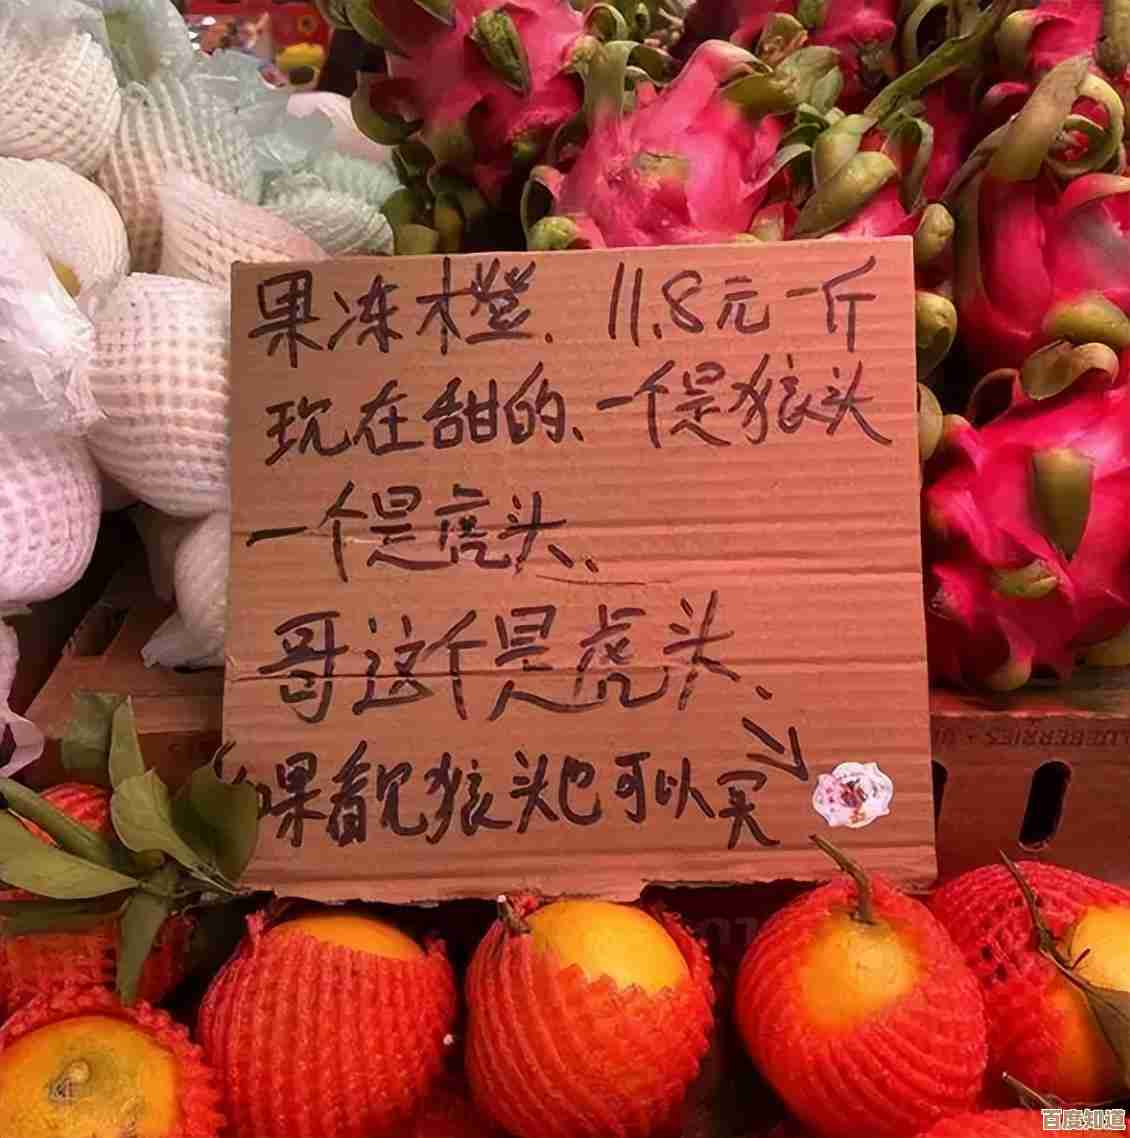 果冻橙、11.8元一斤
现在甜的、一个是狼头
一个是虎头、
哥这个是虎头、
如果看见狼头也可以买
百度知道